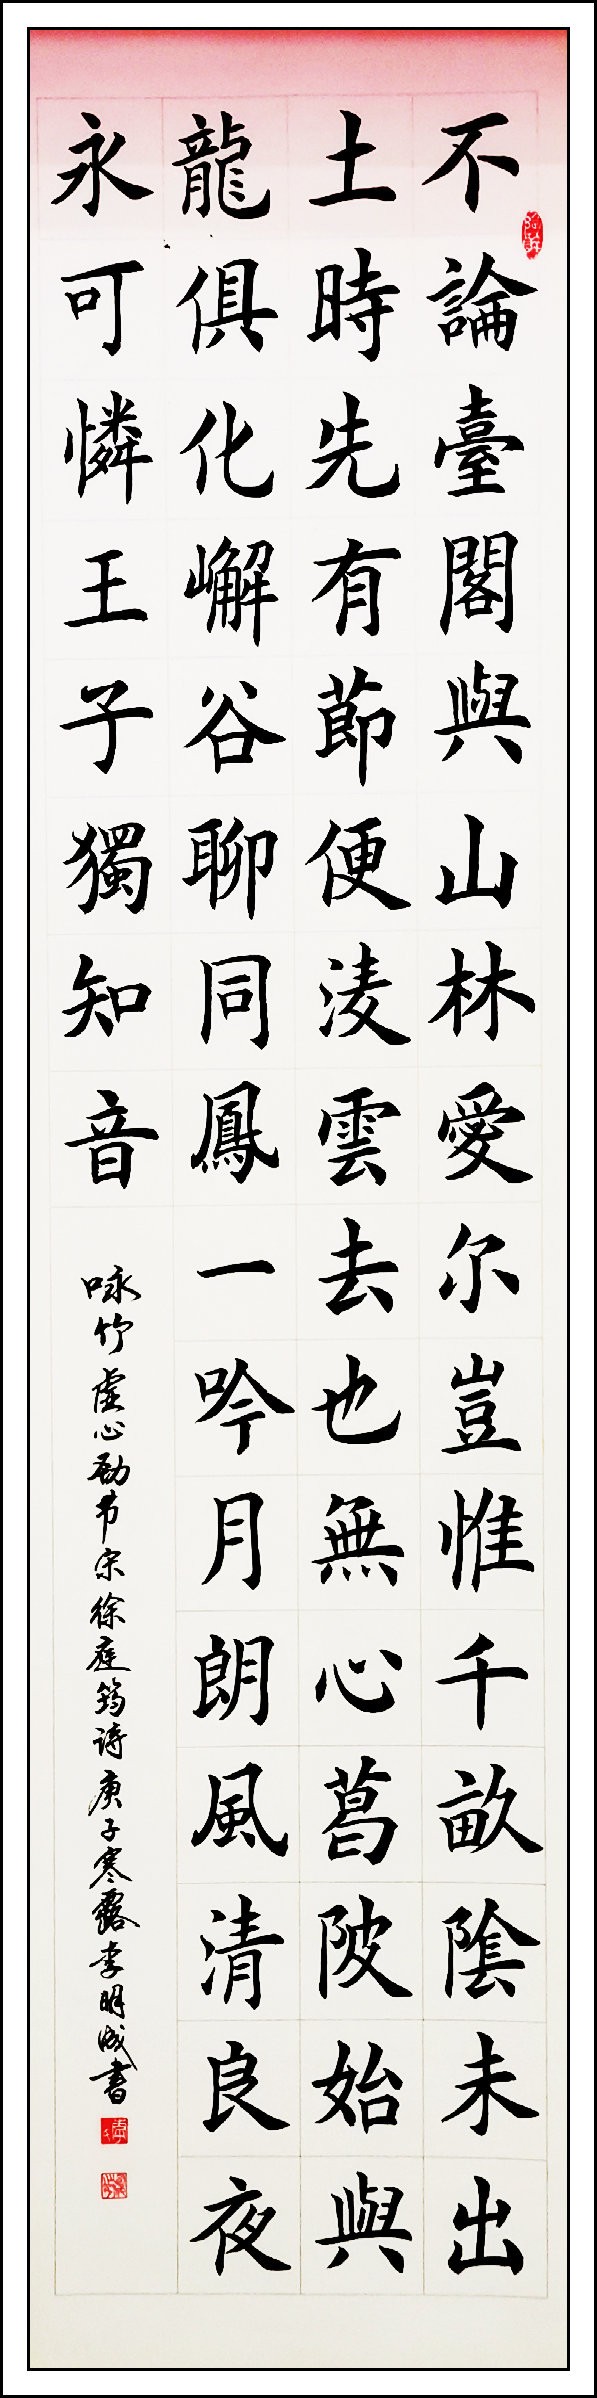 不論臺閣與山林愛尔豈惟千畝陰未出
土時先有節便淩雲去也無心葛陂始與
龍俱化嶰谷聊同鳳一吟月朗風清良夜
永可憐王子獨知音
咏竹虚心劲节宋徐庭筠诗庚子寒露李明成書